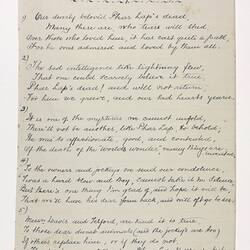 1) Our dearly beloved Phar Lap's dead,
Many there are who tears will shed
Over those who loved him, it has cast quite a pall,
For he was admired and loved by them all.
2) The sad intelligence like lightning flew,
That one could scarcely believe it true,
Phar Lap's dead! and will not return
For him we grieve, and our sad hearts yearn.
3) It is one of the mysteries we cannot unfold,
There'll not be another like Phar Lap to behold,
He was so affectionate, good, and
Of the death of the wonder many things are
4) To the owners and jockeys we send our condolence,
'Twas a hard blow and they cannot
But there's one thing I'm glad of, and hope it will be,
That we'll have his dear form back, and will
5)
Messrs Davis and Telford, are kind it is true
To those dear dumb animals (and the jockeys are too)
If others replace him, or if they do not,